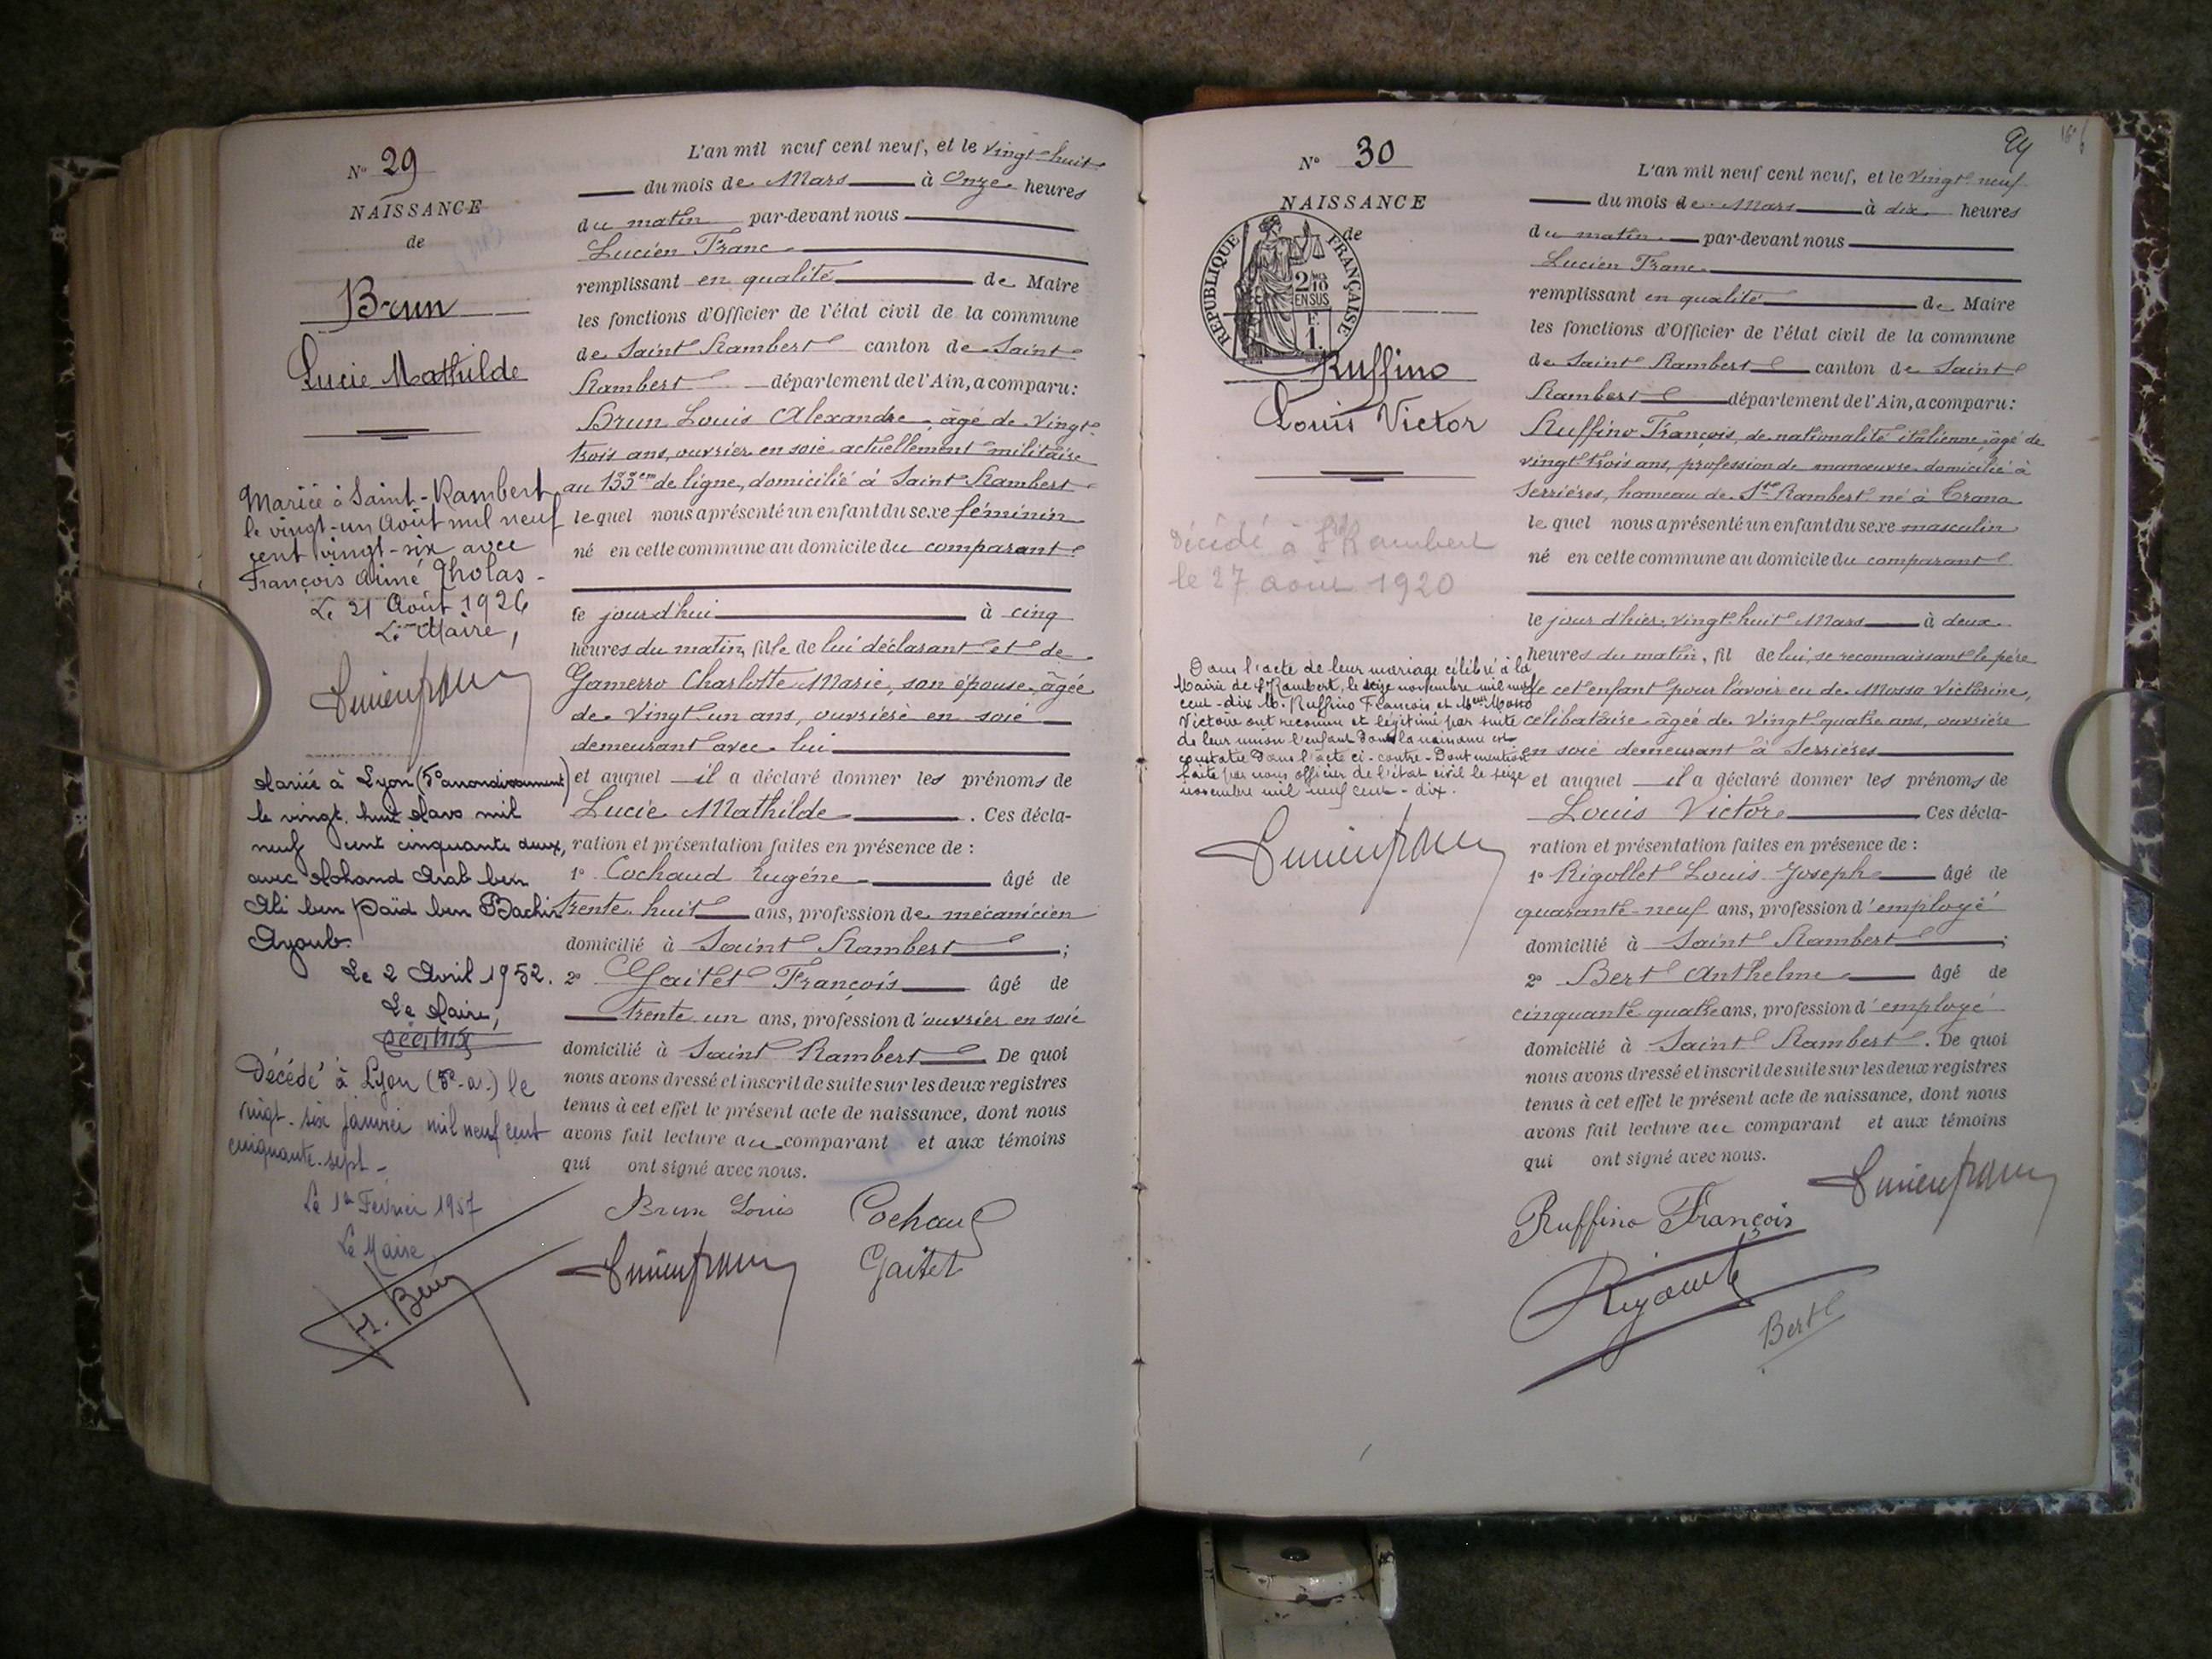 N° 29
NAISSANCE
de
Brun
Lucie Mathilde
Mariée à Saint-Rambert
le vingt-un Août mil neuf
cent vingt-six avec
François Aimé Tholas -
Le 21 Août 1926
Le Maire,
Mariée à Lyon (5e arrondissement)
le vingt. huit Mars mil
neuf cent cinquante deux,
avec Mohand Arab ben
Ali ben Saïd ben Bachir
Ayoub.
Le 2 Avril 1952.
Le Maire,
Décédé à Lyon (5e-a.) le
vingt-six janvier mil neuf cent
cinquante-sept -
Le 1er Février 1957
Le Maire
L'an mil neuf cent neuf, et le vingt-huit
du mois de Mars à Onze heures
du matin par-devant nous
Lucien Franc
remplissant en qualité de Maire
les fonctions d'Officier de l'état civil de la commune
de Saint Rambert canton de Saint
Rambert département de l'Ain, a comparu:
Brun Louis Alexandre, âgé de vingt-
trois ans, ouvrier en soie actuellement militaire
au 133em de ligne, domicilié à Saint Rambert
lequel nous a présenté un enfant du sexe féminin
né en cette commune au domicile du comparant
le jourd'hui à cinq
heures du matin, fille de lui déclarant et de
Gamerro Charlotte Marie, son épouse, âgée
de vingt un ans, ouvrière en soie
demeurant avec lui
et auquel il a déclaré donner les prénoms de
Lucie Mathilde. Ces décla-
ration et présentation faites en présence de :
1° Cochaud Eugène âgé de
trente huit ans, profession de mécanicien
domicilié à Saint Rambert ;
2° Gaitet François âgé de
trente un ans, profession d'ouvrier en soie
domicilié à Saint Rambert De quoi
nous avons dressé et inscrit de suite sur les deux registres
tenus à cet effet le présent acte de naissance, dont nous
avons fait lecture au comparant et aux témoins
qui ont signé avec nous.
Brun Louis Cochaud
Gaitet
24
N° 30
NAISSANCE
de
REPUBLIQUE FRANÇAISE
2/10 EN SUS
F. 1.
Ruffino
Louis Victor
Décédé à St Rambert
le 27 août 1920
Dans l'acte de leur mariage célébré à la
Mairie de St Rambert, le seize novembre mil neuf
cent-dix M. Ruffino François et Melle Mosso
Victoire ont reconnu et légitimé par suite
de leur union l'enfant dont la naissance est
constatée dans l'acte ci-contre - Dont mention
faite par nous officier de l'état civil le seize
novembre mil neuf cent-dix.
L'an mil neuf cent neuf, et le vingt-neuf
du mois de Mars à dix heures
du matin par-devant nous
Lucien Franc
remplissant en qualité de Maire
les fonctions d'Officier de l'état civil de la commune
de Saint Rambert canton de Saint
Rambert département de l'Ain, a comparu:
Ruffino François, de nationalité italienne, âgé de
vingt-trois ans, profession de manœuvre domicilié à
Serrières, hameau de St Rambert né à Trana
lequel nous a présenté un enfant du sexe masculin
né en cette commune au domicile du comparant
le jour d'hier, vingt huit Mars à deux
heures du matin, fil de lui, se reconnaissant le père
de cet enfant pour l'avoir eu de Mosso Victorine,
célibataire âgée de vingt-quatre ans, ouvrière
en soie demeurant à Serrières
et auquel il a déclaré donner les prénoms de
Louis Victor Ces décla-
ration et présentation faites en présence de :
1° Rigollet Louis Joseph âgé de
quarante-neuf ans, profession d'employé
domicilié à Saint Rambert ;
2° Bert Anthelme âgé de
cinquante quatre ans, profession d'employé
domicilié à Saint Rambert. De quoi
nous avons dressé et inscrit de suite sur les deux registres
tenus à cet effet le présent acte de naissance, dont nous
avons fait lecture au comparant et aux témoins
qui ont signé avec nous.
Ruffino François
Bert